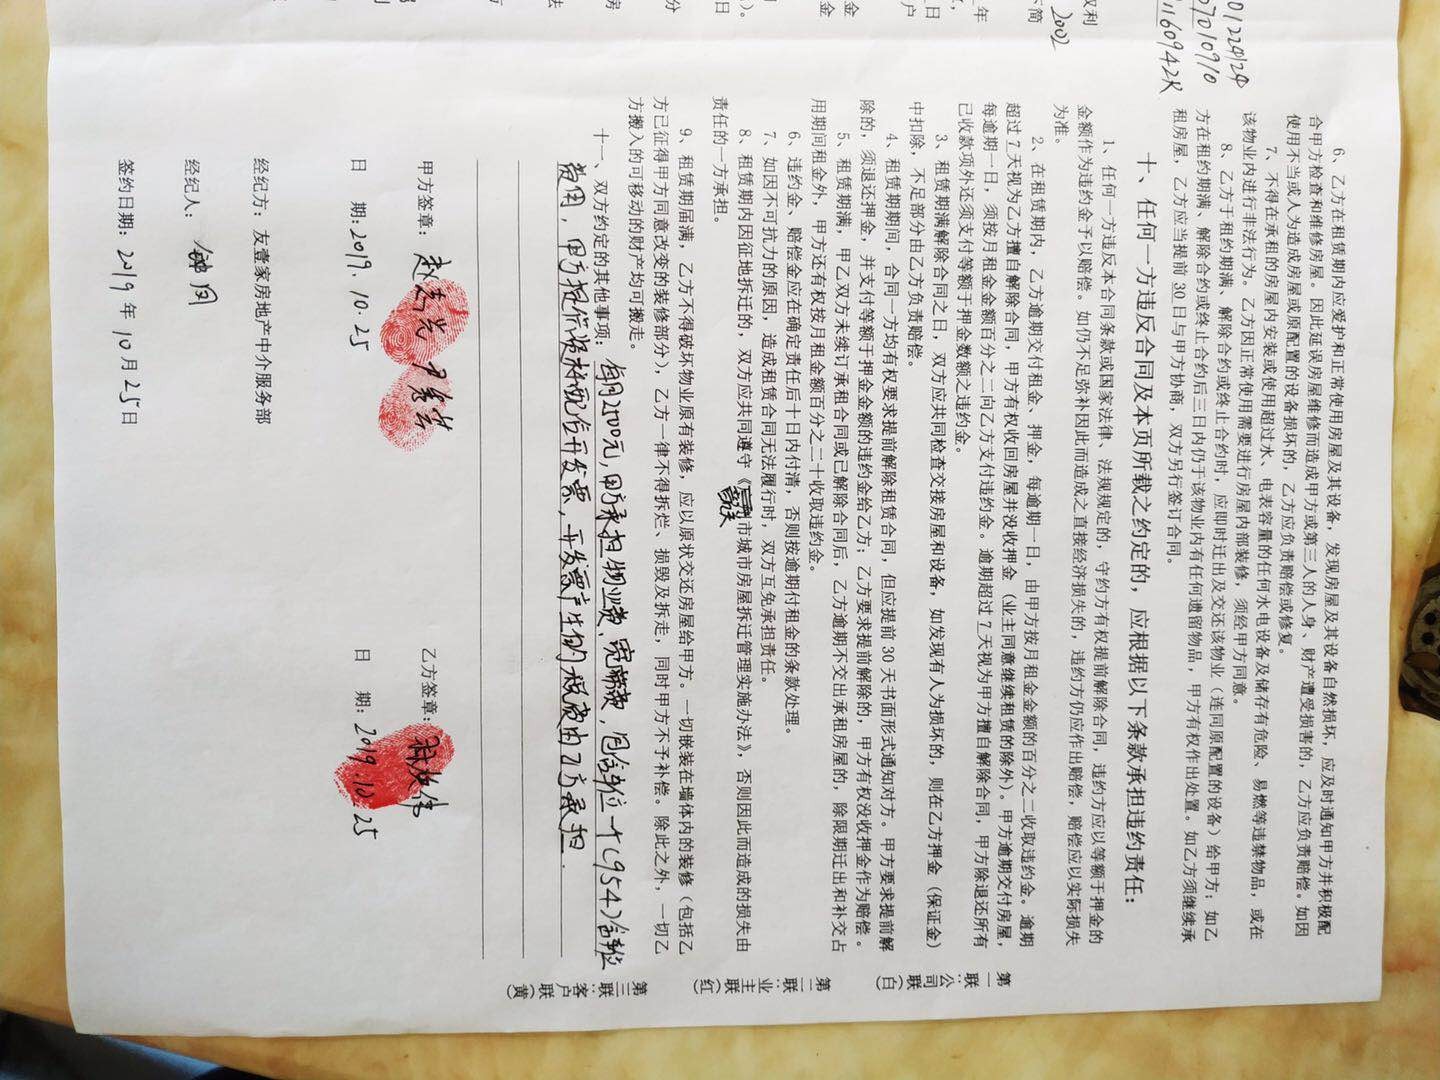 6、乙方在租赁期内应爱护和正常使用房屋及其设备，发现房屋及其设备自然损坏，应及时通知甲方并积极配
合甲方检查和维修房屋。因此延误房屋维修而造成甲方或第三人的人身、财产遭受损害的，乙方应负责赔偿。如因
使用不当或人为造成房屋或原配置的设备损坏的，乙方应负责赔偿或修复。
7、不得在承租的房屋内安装或使用超过水、电表容量的任何水电设备及储存有危险、易燃等违禁物品，或在
该物业内进行非法行为。乙方因正常使用需要进行房屋内部装修，须经甲方同意。
8、乙方于租约期满、解除合约或终止合约时，应即时迁出及交还该物业（连同原配置的设备）给甲方；如乙
方在租约期满、解除合约或终止合约后三日内仍于该物业内有任何遗留物品，甲方有权作出处置。如乙方须继续承
租房屋，乙方应当提前 30 日与甲方协商，双方另行签订合同。
十、任何一方违反合同及本页所载之约定的，应根据以下条款承担违约责任：
1、任何一方违反本合同条款或国家法律、法规规定的，守约方有权提前解除合同，违约方应以等额于押金的
金额作为违约金予以赔偿。如仍不足弥补因此而造成之直接经济损失的，违约方仍应作出赔偿，赔偿应以实际损失
为准。
2、在租赁期内，乙方逾期交付租金、押金，每逾期一日，由甲方按月租金金额的百分之二收取违约金。逾期
超过 7 天视为乙方擅自解除合同，甲方有权收回房屋并没收押金（业主同意继续租赁的除外）。甲方逾期交付房屋，
每逾期一日，须按月租金金额百分之二向乙方支付违约金。逾期超过 7 天视为甲方擅自解除合同，甲方除退还所有
已收款项外还须支付等额于押金数额之违约金。
3、租赁期满解除合同之日，双方应共同检查交接房屋和设备，如发现有人为损坏的，则在乙方押金（保证金）
中扣除，不足部分由乙方负责赔偿。
4、租赁期期间，合同一方均有权要求提前解除租赁合同，但应提前 30 天书面形式通知对方。甲方要求提前解
除的，须退还押金，并支付等额于押金金额的违约金给乙方；乙方要求提前解除的，甲方有权没收押金作为赔偿。
5、租赁期满，甲乙双方未续订承租合同或已解除合同后，乙方逾期不交出承租房屋的，除限期迁出和补交占
用期间租金外，甲方还有权按月租金额百分之二十收取违约金。
6、违约金、赔偿金应在确定责任后十日内付清，否则按逾期付租金的条款处理。
7、如因不可抗力的原因，造成租赁合同无法履行时，双方互免承担责任。
8、租赁期内因征地拆迁的，双方应共同遵守《市城市房屋拆迁管理实施办法》，否则因此而造成的损失由
责任的一方承担。
9、租赁期届满，乙方不得破坏物业原有装修，应以原状交还房屋给甲方。一切嵌装在墙体内的装修（包括乙
方已征得甲方同意改变的装修部分），乙方一律不得拆烂、损毁及拆走，同时甲方不予补偿。除此之外，一切乙
方搬入的可移动的财产均可搬走。
十一、双方约定的其他事项：每月2100元，甲方承担物业费、宽带费，包含车位一个(954)含车位
费用，甲方提供资料配合开发票，开发票产生的税费由乙方承担.
甲方签章：
乙方签章：
日 期：2019.10.25
日 期：2019.10.25
经纪方：友壹家房地产中介服务部
经纪人：
签约日期：2019 年 10 月 25 日
第一联：公司联（白）
第二联：业主联（红）
第三联：客户联（黄）
2002